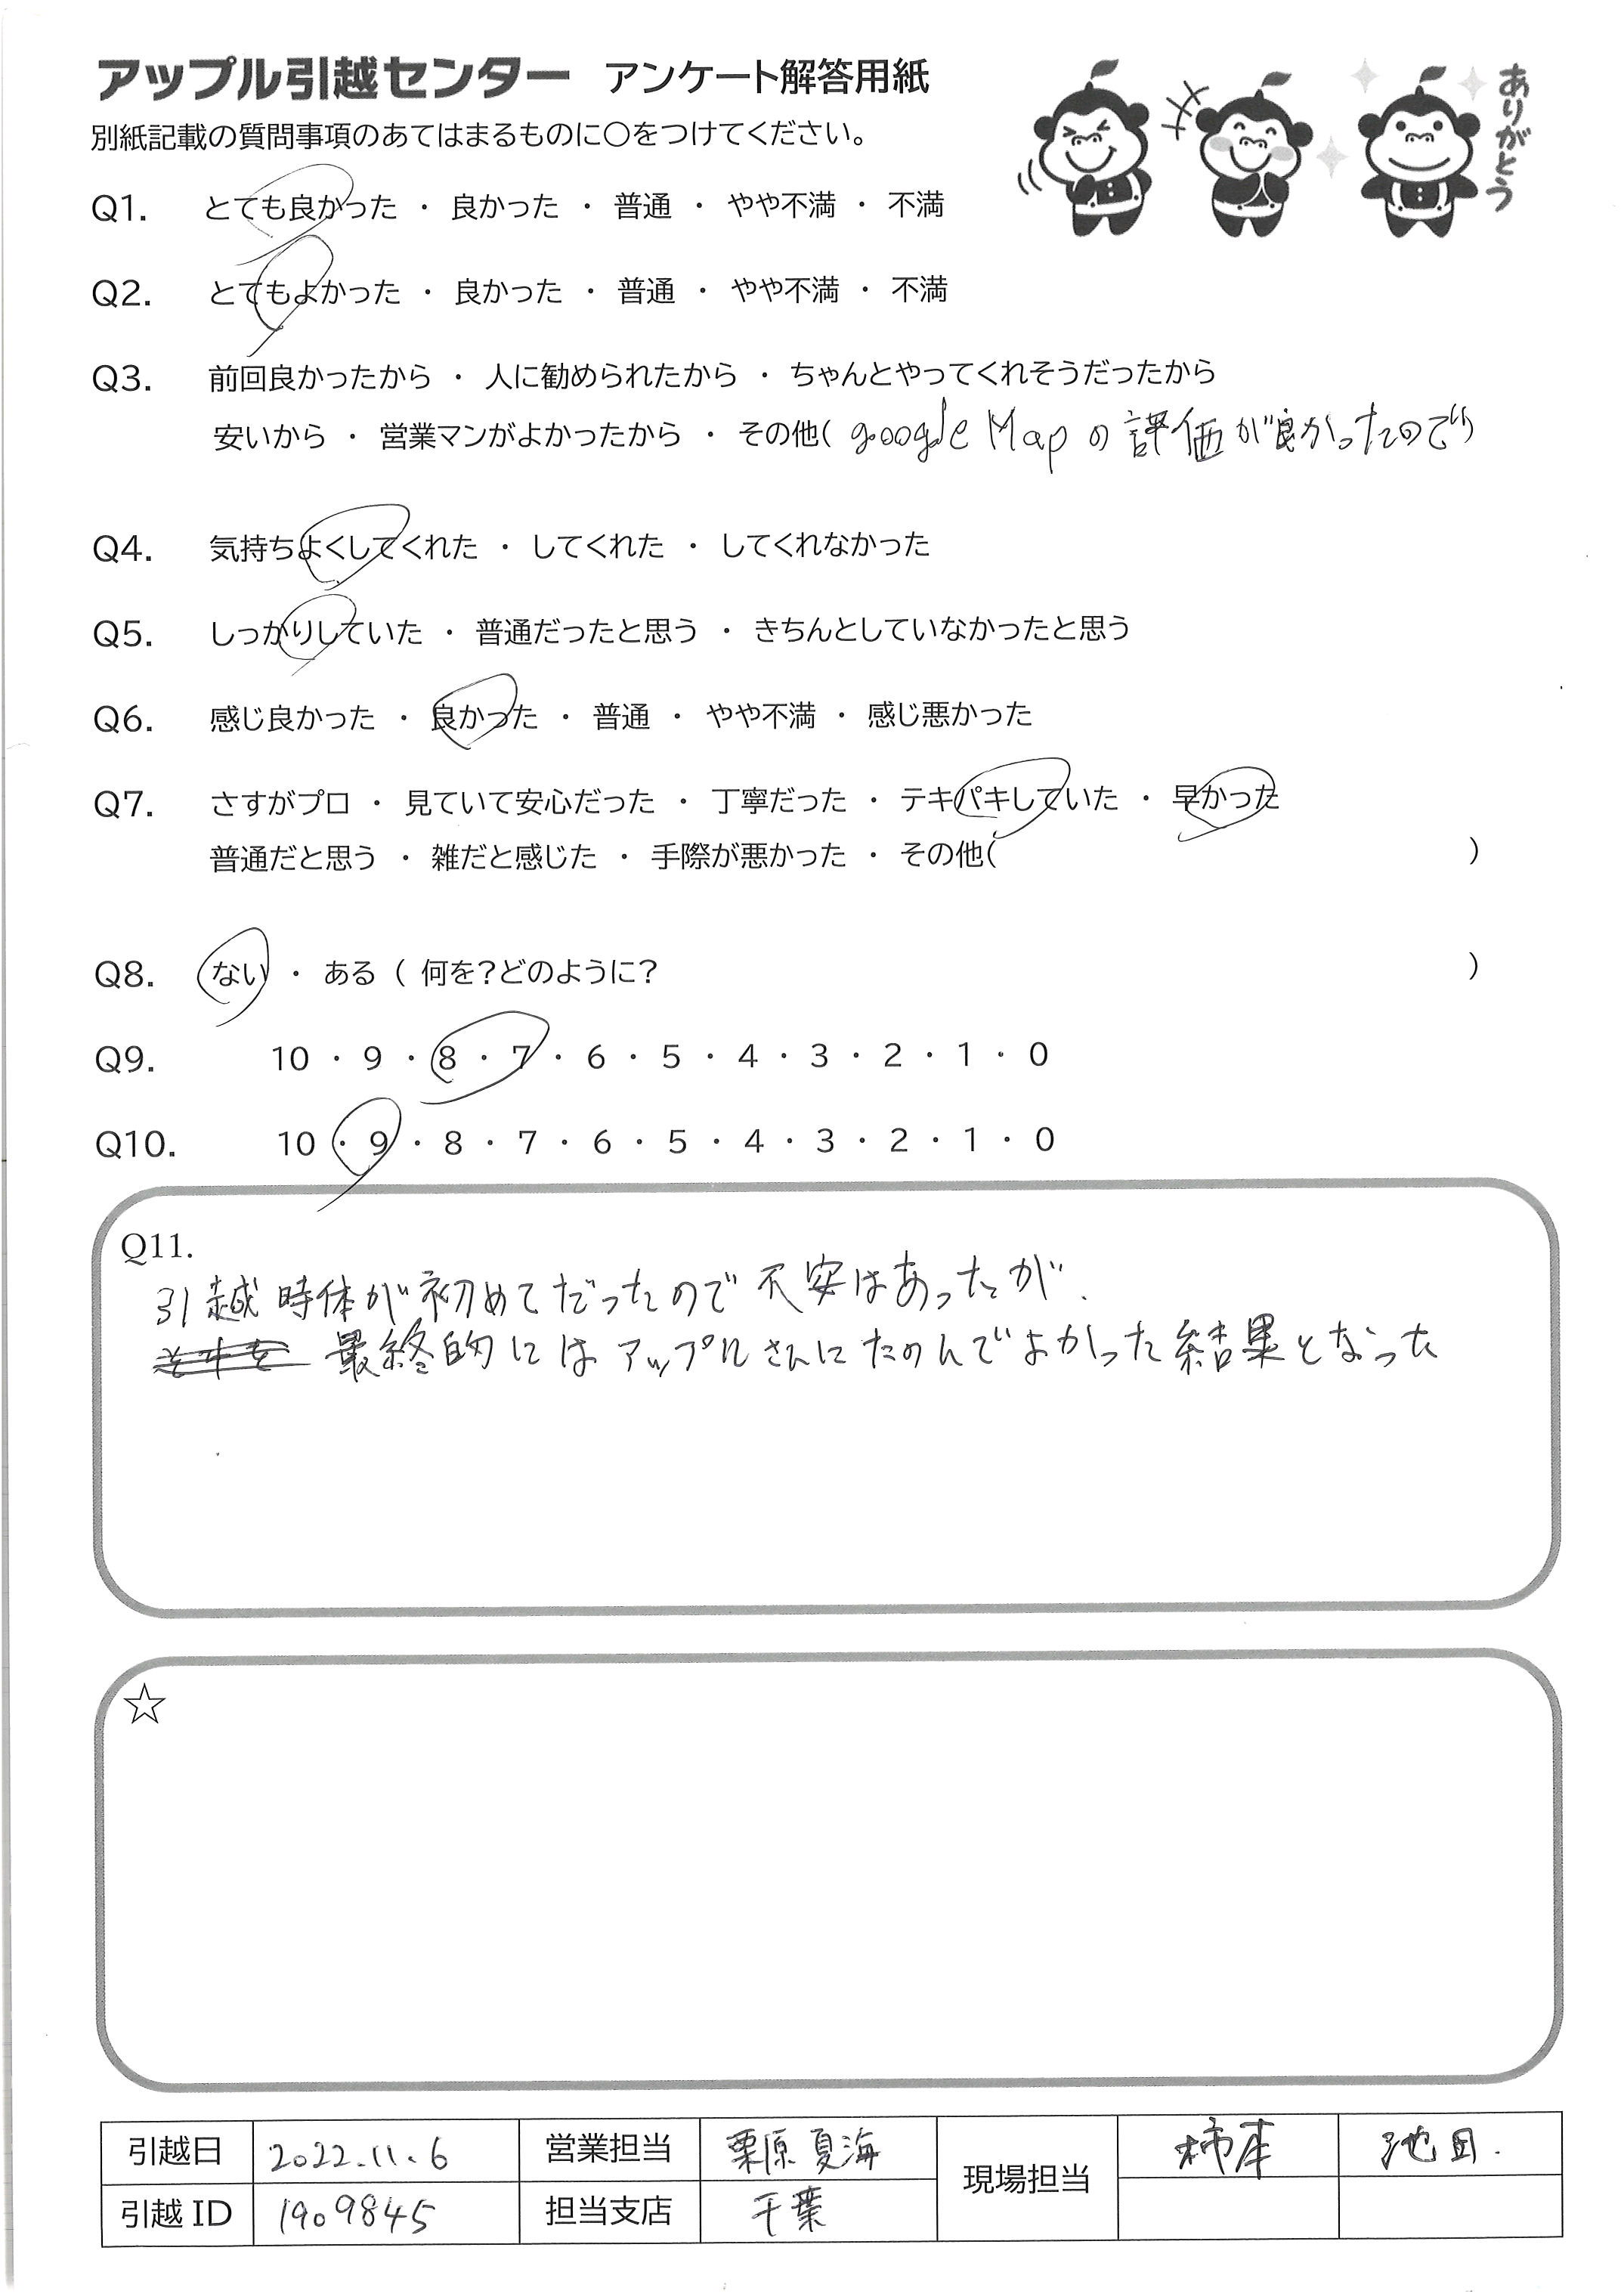 アップル引越センター アンケート解答用紙
ありがとう
別紙記載の質問事項のあてはまるものに〇をつけてください。
Q1. とても良かった ・ 良かった ・ 普通 ・ やや不満 ・ 不満
Q2. とてもよかった ・ 良かった ・ 普通 ・ やや不満 ・ 不満
Q3. 前回良かったから ・ 人に勧められたから ・ ちゃんとやってくれそうだったから
安いから ・ 営業マンがよかったから ・ その他( google Mapの評価が良かったので)
Q4. 気持ちよくしてくれた ・ してくれた ・ してくれなかった
Q5. しっかりしていた ・ 普通だったと思う ・ きちんとしていなかったと思う
Q6. 感じ良かった ・ 良かった ・ 普通 ・ やや不満 ・ 感じ悪かった
Q7. さすがプロ ・ 見ていて安心だった ・ 丁寧だった ・ テキパキしていた ・ 早かった
普通だと思う ・ 雑だと感じた ・ 手際が悪かった ・ その他( )
Q8. ない ・ ある ( 何を?どのように? )
Q9. 10 ・ 9 ・ 8 ・ 7 ・ 6 ・ 5 ・ 4 ・ 3 ・ 2 ・ 1 ・ 0
Q10. 10 ・ 9 ・ 8 ・ 7 ・ 6 ・ 5 ・ 4 ・ 3 ・ 2 ・ 1 ・ 0
Q11.
引越時体が初めてだったので不安はあったが、
最終的にはアップルさんにたのんでよかった結果となった
☆
引越日 2022.11.6 営業担当 栗原夏海 現場担当 柿本 池田.
引越ID 1909845 担当支店 千葉